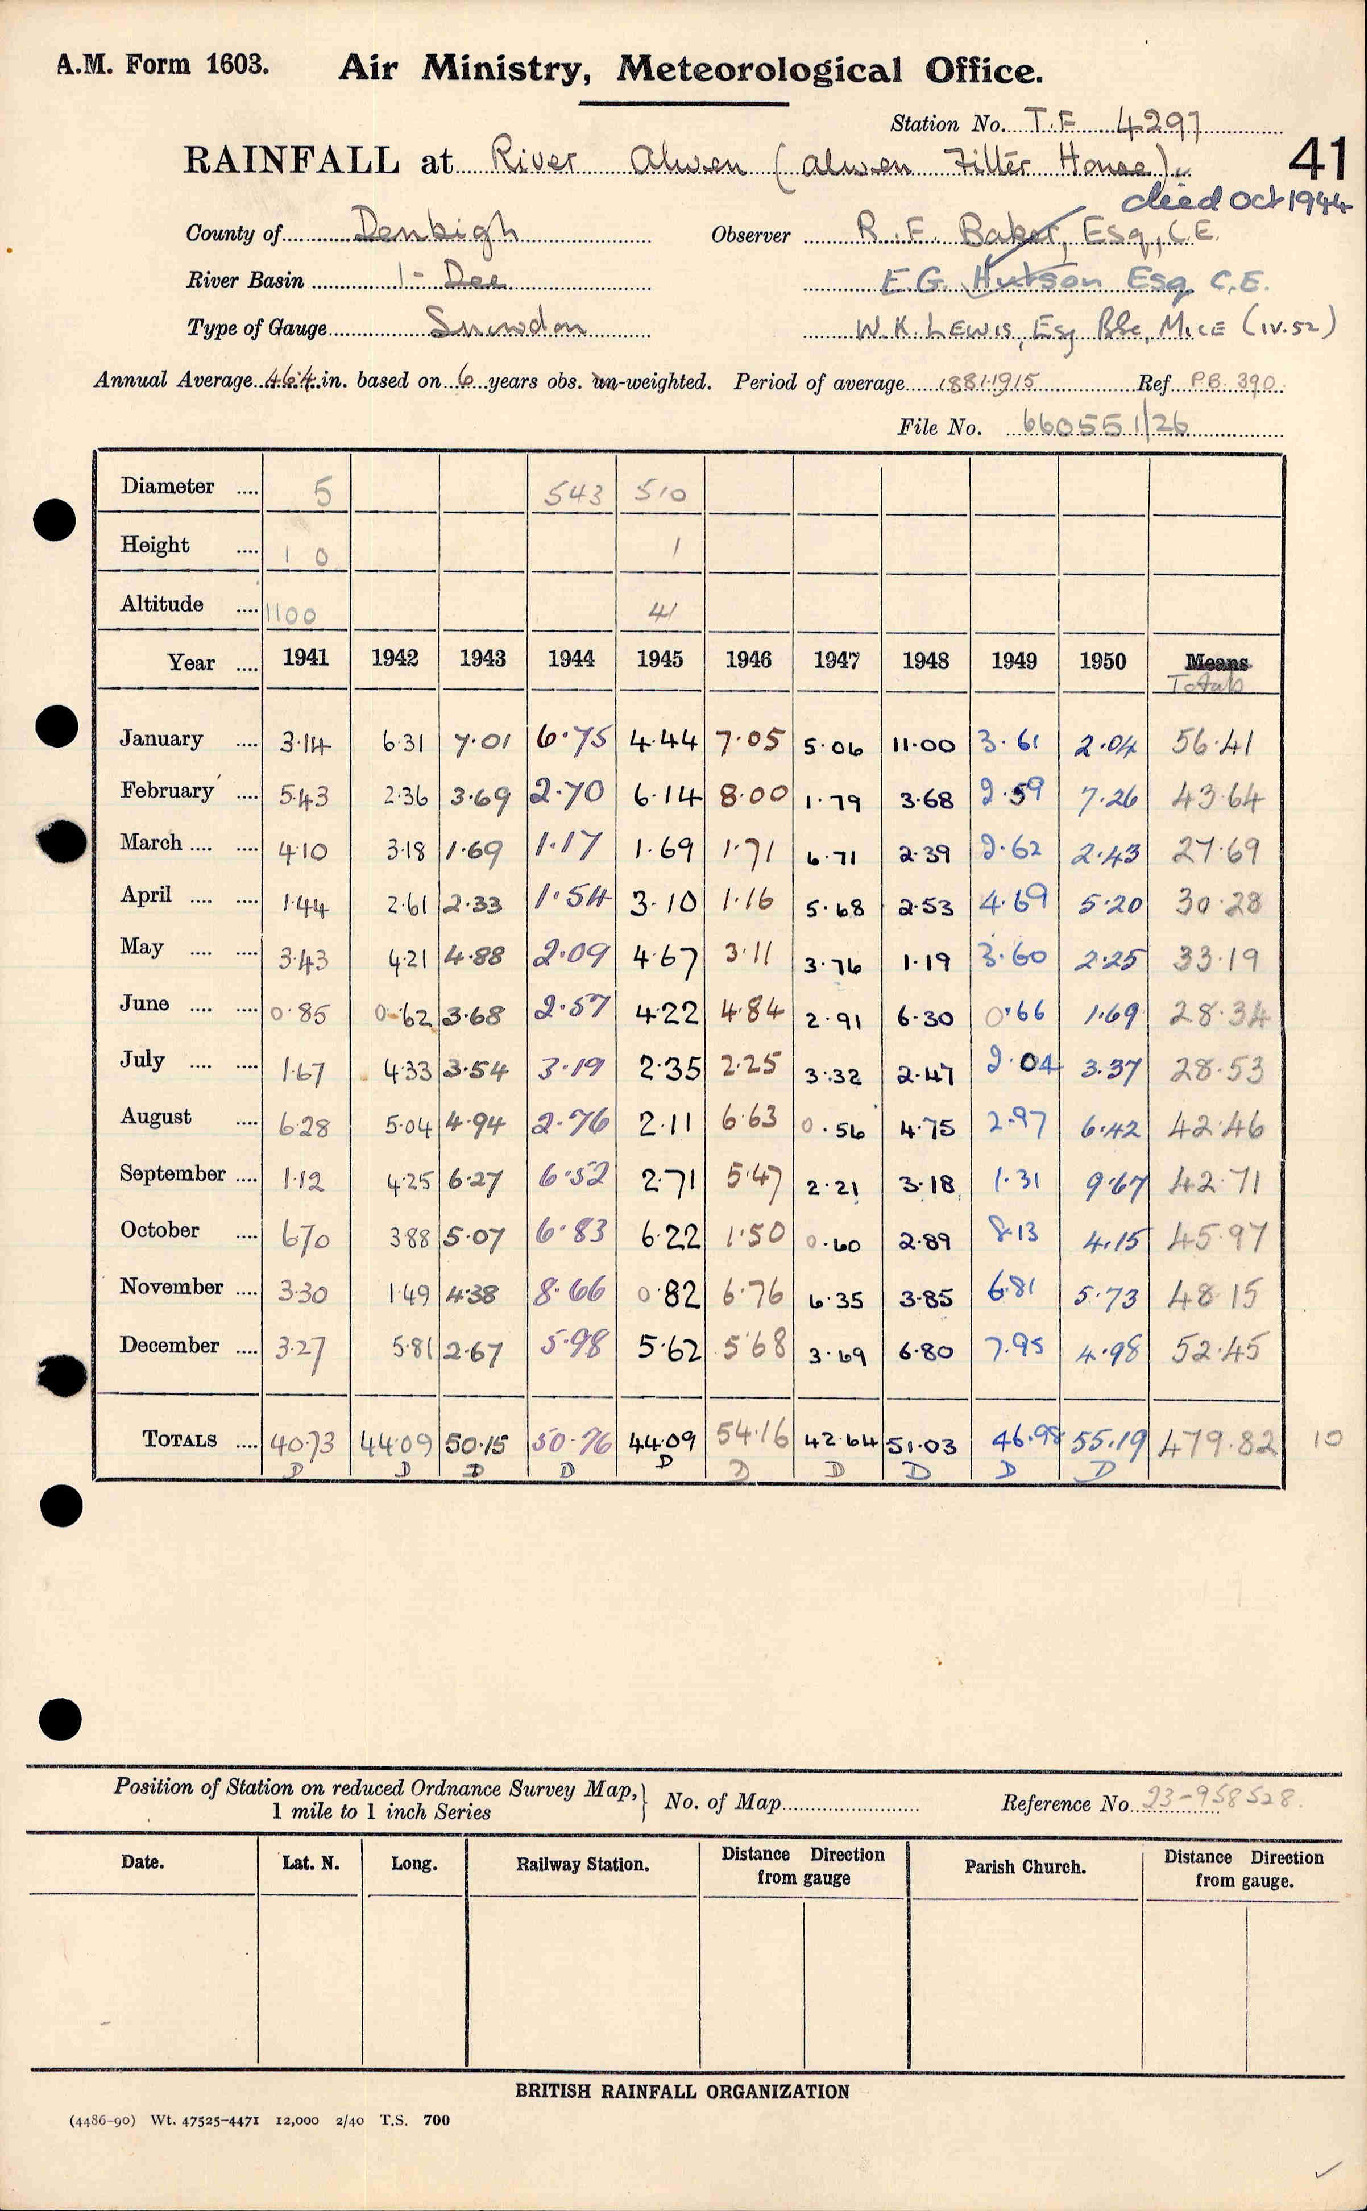 A.M. Form 1603. Air Ministry, Meteorological Office.
Station No. T.F 4297
41
RAINFALL at River Alwen (Alwen Filter House).
died Oct 1944
County of Denbigh Observer R. F. Baker, Esq., C.E.
River Basin 1 - Dee E G. Hutson Esq C.E.
Type of Gauge Snowdon W.K. LEWIS, Esq BSc, MICE (IV.52)
Annual Average 46.4 in. based on 6 years obs. un-weighted. Period of average 1881-1915 Ref PB. 390
File No. 660551/26
Diameter .... 5 543 510
Height .... 1 0 1
Altitude .... 1100 41
Year .... 1941 1942 1943 1944 1945 1946 1947 1948 1949 1950 Means
Totals
January .... 3.14 6.31 7.01 6.75 4.44 7.05 5.06 11.00 3.61 2.04 56.41
February .... 5.43 2.36 3.69 2.70 6.14 8.00 1.79 3.68 2.59 7.26 43.64
March .... .... 4.10 3.18 1.69 1.17 1.69 1.71 6.71 2.39 2.62 2.43 27.69
April .... .... 1.44 2.61 2.33 1.54 3.10 1.16 5.68 2.53 4.69 5.20 30.28
May .... .... 3.43 4.21 4.88 2.09 4.67 3.11 3.76 1.19 3.60 2.25 33.19
June .... .... 0.85 0.62 3.68 2.57 4.22 4.84 2.91 6.30 0.66 1.69 28.34
July .... .... 1.67 4.33 3.54 3.19 2.35 2.25 3.32 2.47 2.04 3.37 28.53
August .... 6.28 5.04 4.94 2.76 2.11 6.63 0.56 4.75 2.97 6.42 42.46
September .... 1.12 4.25 6.27 6.52 2.71 5.47 2.21 3.18 1.31 9.67 42.71
October .... 6.70 3.88 5.07 6.83 6.22 1.50 0.60 2.89 8.13 4.15 45.97
November .... 3.30 1.49 4.38 8.66 0.82 6.76 6.35 3.85 6.81 5.73 48.15
December .... 3.27 5.81 2.67 5.98 5.62 5.68 3.69 6.80 7.95 4.98 52.45
TOTALS .... 40.73 44.09 50.15 50.76 44.09 54.16 42.64 51.03 46.98 55.19 479.82 10
D D D D D D D D D D
Position of Station on reduced Ordnance Survey Map, } No. of Map Reference No. 23-958528.
1 mile to 1 inch Series
Date. Lat. N. Long. Railway Station. Distance Direction from gauge Parish Church. Distance Direction from gauge.
BRITISH RAINFALL ORGANIZATION
(4486-90) Wt. 47525-4471 12,000 2/40 T.S. 700